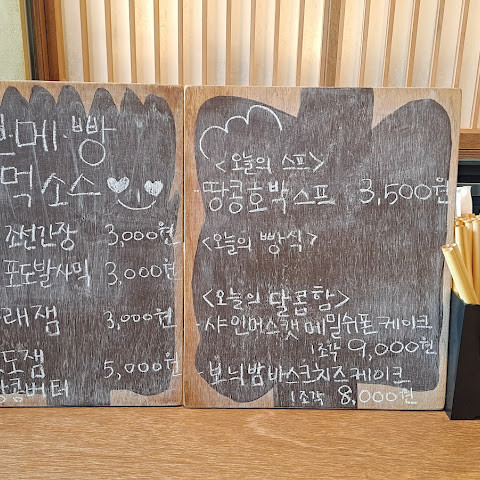 메·빵
먹소스
조선간장 3,000원
포도발사믹 3,000원
래잼 3,000원
도잼 5,000원
콩버터
<오늘의 스프>
땅콩호박스프 3,500원
<오늘의 빵식>
<오늘의 달콤함>
-샤인머스캣메밀쉬폰케이크
1조각 9,000원
-보늬밤바스크치즈케이크
1조각 8,000원